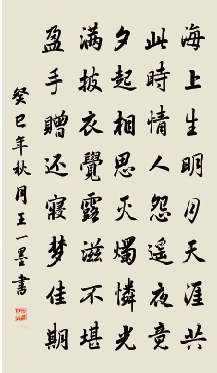 海上生明月天涯共
此時情人怨遙夜竟
夕起相思灭燭憐光
满披衣覺露滋不堪
盈手贈还寢梦佳期
癸巳年秋月王一墨書